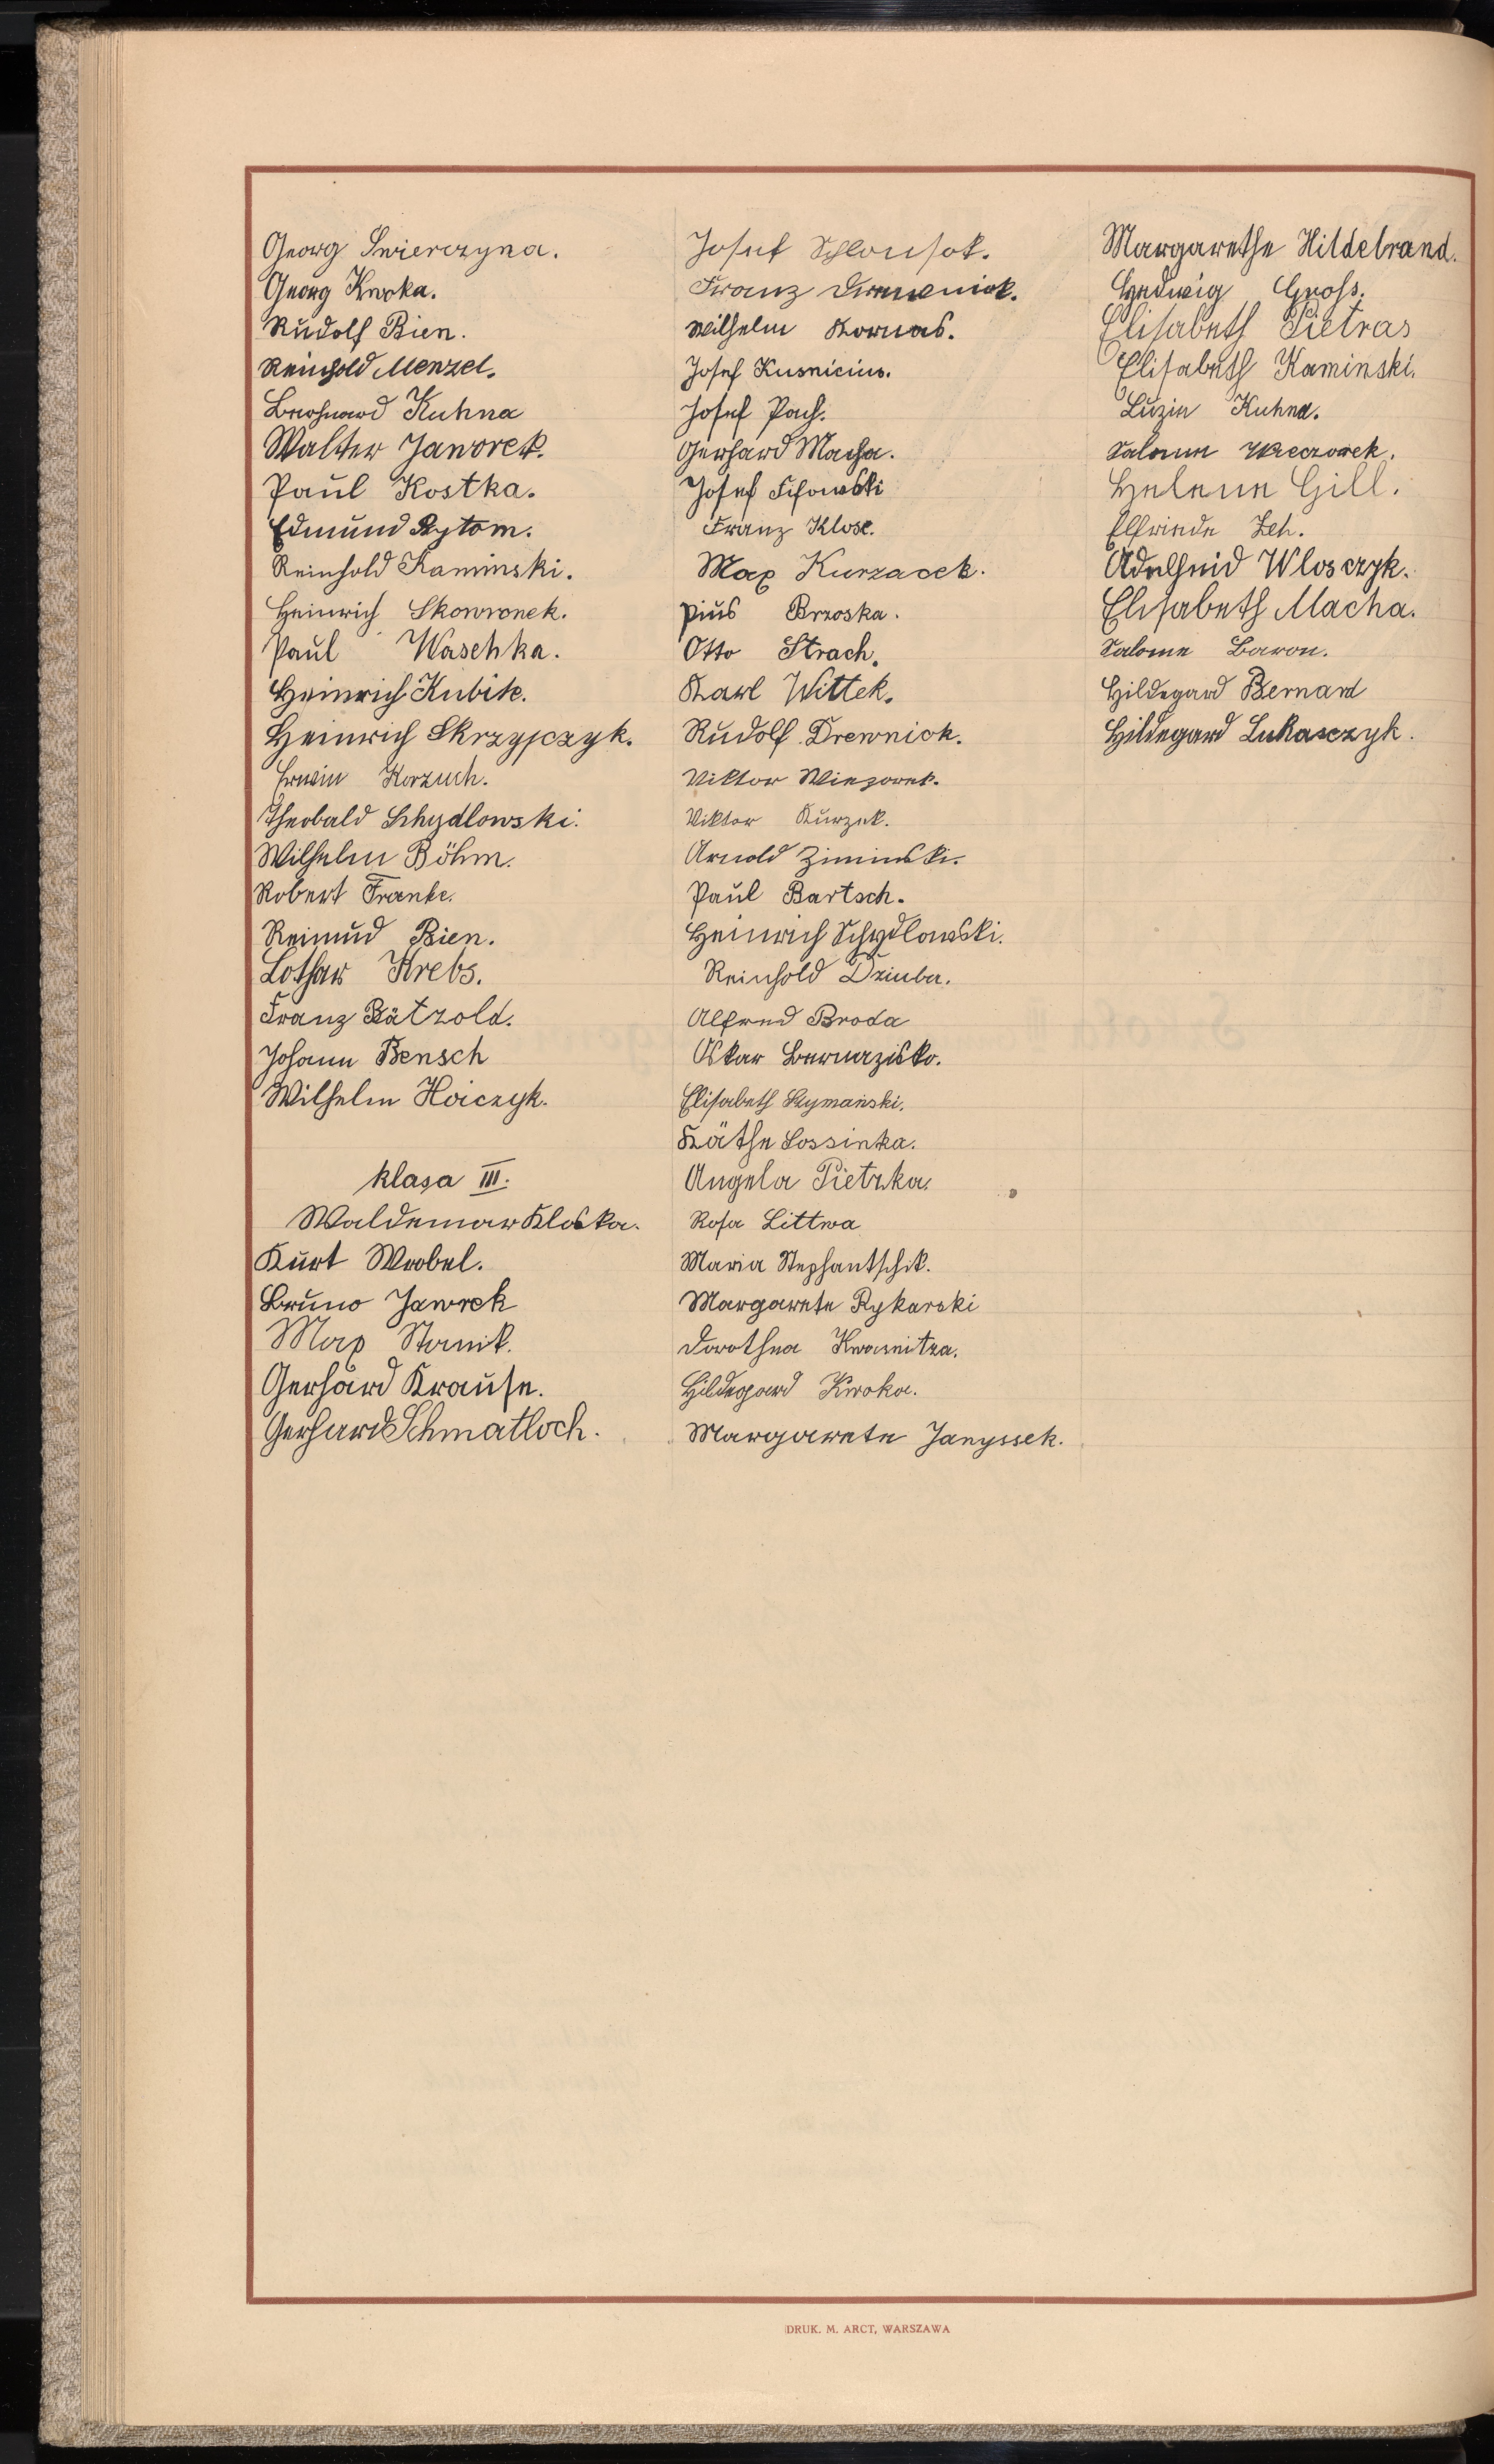 Georg Swierczyna.
Georg Kwoka.
Rudolf Bien.
Reinhold Menzel.
Bernhard Kuhna
Walter Jaworek.
Paul Kostka.
Edmund Rytom.
Reinhold Kaminski.
Heinrich Skowronek.
Paul Waschka.
Heinrich Kubik.
Heinrich Skrzypczyk.
Erwin Korzuch.
Theobald Schydlowski.
Wilhelm Böhm.
Robert Franke.
Reimud Bien.
Lothar Krebs.
Franz Bätzold.
Johann Bensch
Wilhelm Hoiczyk.
klasa III.
Waldemar Kloska.
Kurt Wrobel.
Bruno Jawrek
Max Stanik.
Gerhard Krause.
Gerhard Schmatloch.
Josef Schlonsok.
Franz
Wilhelm Kornas.
Josef Kusnicius.
Josef Pach.
Gerhard Macha.
Josef
Franz Klose.
Max Kurzacek.
Pius Brzoska.
Otto Strach.
Karl Wittek.
Rudolf Drewniok.
Viktor Wiezorek.
Viktor Kurzek.
Arnold Ziminski.
Paul Bartsch.
Heinrich Schydlowski.
Reinhold Dziuba.
Alfred Broda
Oskar Bernazisko.
Elisabeth Szymański.
Käthe Lossinka.
Angela Pietzka.
Rosa Littwa
Maria Stephantschik.
Margarete Rykarski
Dorothea Kwasnitza.
Hildegard Kwoka.
Margarete Janyssek.
Margarethe Hildebrand.
Hedwig Gross.
Elisabeth Pietras
Elisabeth Kaminski.
Luzie Kuhna.
Salome Wieczorek.
Helene Gill.
Elfriede Zeh.
Adelheid Wlosczyk.
Elisabeth Macha.
Salome Baron.
Hildegard Bernard
Hildegard Lukasczyk.
DRUK. M. ARCT, WARSZAWA